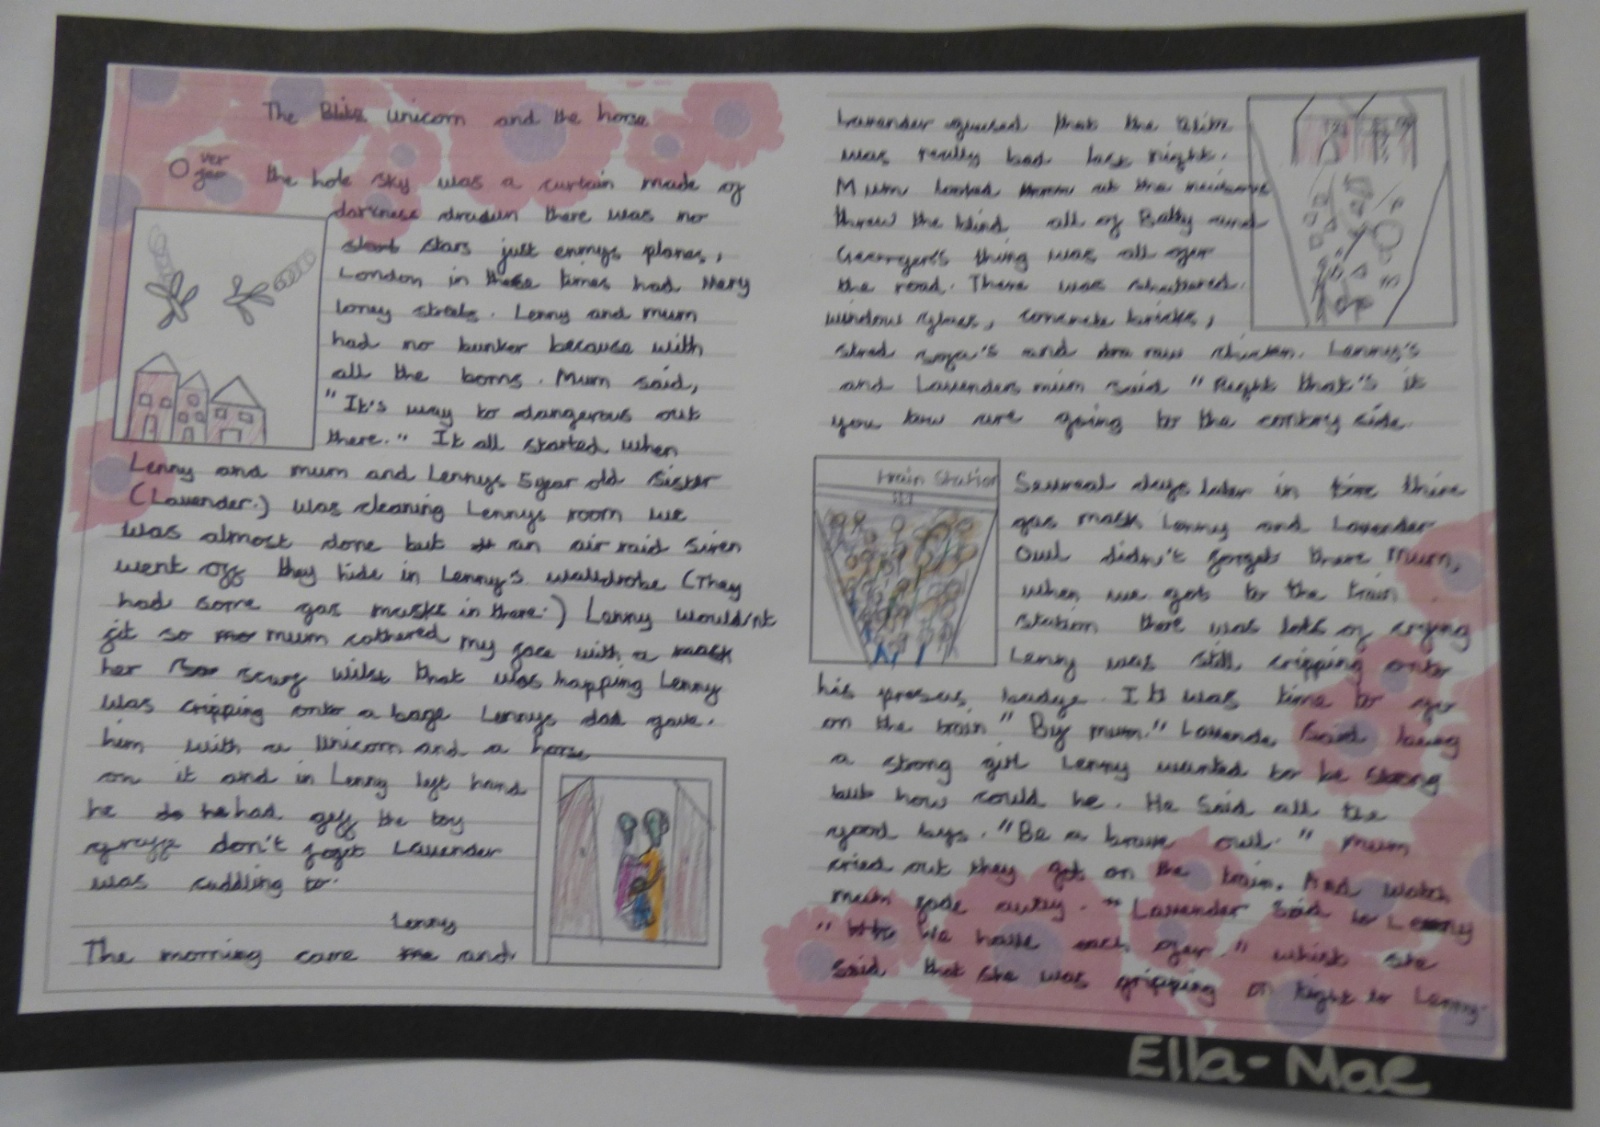 The Blits unicorn and the horse
Over the hole sky was a curtain made of
darkness there was no
stars just enmys planes,
London in these times had Many
loney streets. Lenny and mum
had no bunker because with
all the boms. Mum said,
"It's way to dangerous out
there." It all started when
Lenny and mum and Lennys 5 year old sister
(Lavender.) was cleaning Lennys room we
was almost done but an air raid siren
went off they hide in Lenny's walldrobe (They
had some gas masks in there.) Lenny wouldn't
fit so mum cothered my face with a mask
her scarf wilst that was happing Lenny
was cripping onto a bage Lennys dad gave.
him with a Unicorn and a horse
on it and in Lenny left hand
he he had the toy
don't foget Lavender
was cuddling to.
Lenny
The morning came and
Lavender that the
was really bad last night.
Mum looked at the
threw the blind all of Batty and
thing was all over
the road. There was
window glass, concrete bricks,
and raw chicken. Lenny's
and Lavenders mum said "Right that's it
you tow are going to the contery side.
train station
Several days later in time there
gas mask Lenny and Lavender
Owl didn't forget there Mum,
when we got to the train
station there was lots of crying
Lenny was still cripping onto
his badge. It was time to
on the train "By mum." Lavender said being
a strong girl Lenny wanted to be strong
but how could he. He said all the
good bys. "Be a brave owl." Mum
cried out they got on the train. And watch
mum fade away. "Lavender said to Lenny
"We have each over." whilst she
said that she was gripping on tight to Lenny.
Ella-Mae